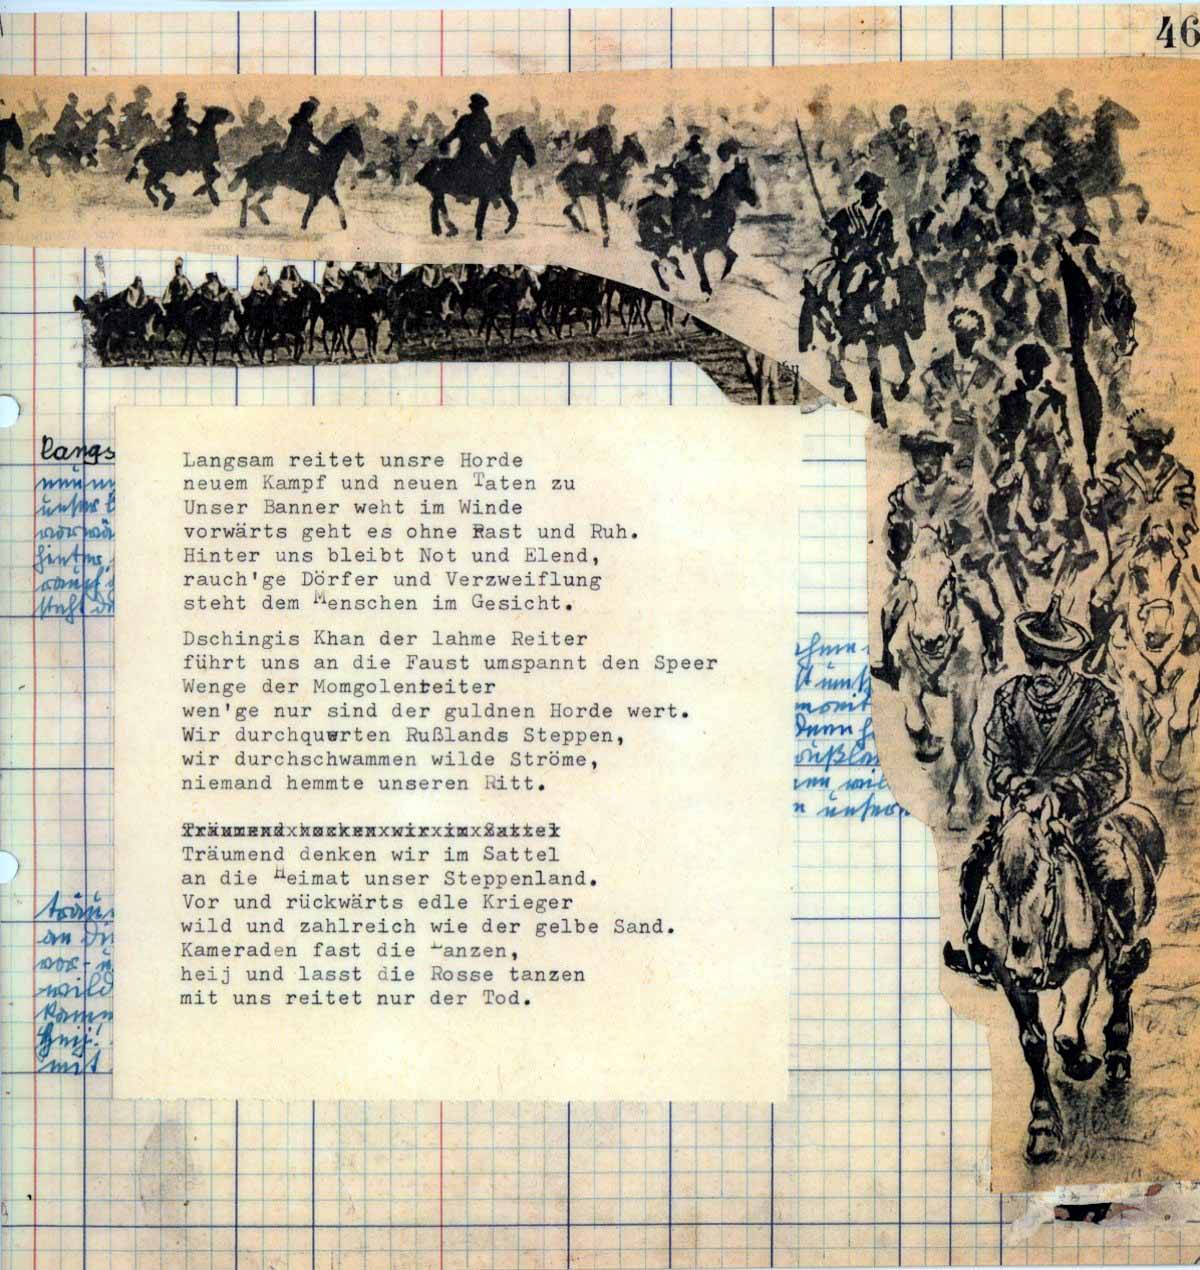 46
langs
Langsam reitet unsre Horde
neuem Kampf und neuen Taten zu
Unser Banner weht im Winde
vorwärts geht es ohne Rast und Ruh.
Hinter uns bleibt Not und Elend,
rauch'ge Dörfer und Verzweiflung
steht dem Menschen im Gesicht.
Dschingis Khan der lahme Reiter
führt uns an die Faust umspannt den Speer
Wenge der Momgolenreiter
wen'ge nur sind der guldnen Horde wert.
Wir durchquerten Rußlands Steppen,
wir durchschwammen wilde Ströme,
niemand hemmte unseren Ritt.
Träumend hocken wir im Sattel
Träumend denken wir im Sattel
an die Heimat unser Steppenland.
Vor und rückwärts edle Krieger
wild und zahlreich wie der gelbe Sand.
Kameraden fast die Lanzen,
heij und lasst die Rosse tanzen
mit uns reitet nur der Tod.
träu
an di
vor-
wild
Kam
heij!
mit